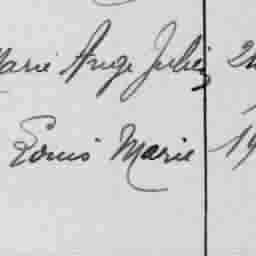 Marie Ange Julien 2
Louis Marie 19